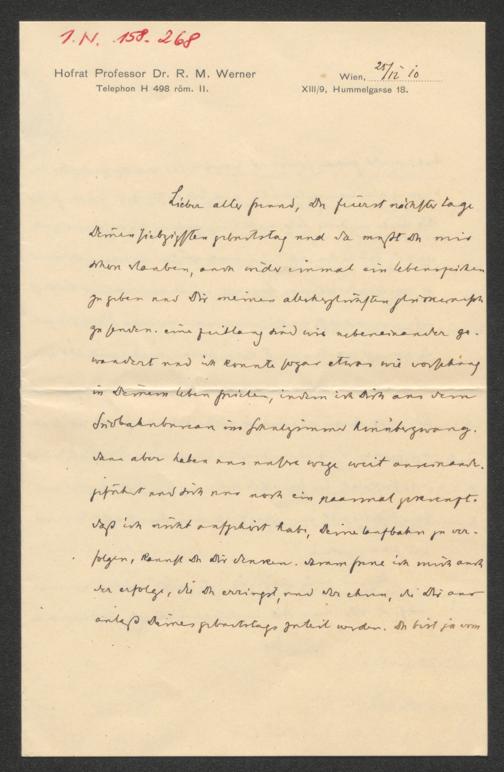 I.N. 158.268
Hofrat Professor Dr. R. M. Werner
Telephon H 498 röm. II.
Wien, 25/II 10
XIII/9, Hummelgasse 18.
Lieber alter freund, Du feierst nächster tage
Deinen siebzigsten geburtstag und da mußt Du mir
schon erlauben, auch wider einmal ein lebenszeichen
zu geben und Dir meinen allerherzlichsten glückwunsch
zu senden. eine zeitlang sind wir nebeneinander ge-
wandert und ich konnte sogar etwas wie vorsehung
in Deinem leben spielen, indem ich Dich aus dem
Südbahnbureau ins schulzimmer hinüberzwang.
dann aber haben uns unsere wege weit auseinander
geführt und sich nur noch ein paarmal gekreuzt.
daß ich nicht aufgehört habe, Deine laufbahn zu ver-
folgen, kannst Du Dir denken. darum freue ich mich auch
der erfolge, die Du erringst, und der ehren, die Dir aus
anlaß Deines geburtstags zuteil werden. Du bist ja vom